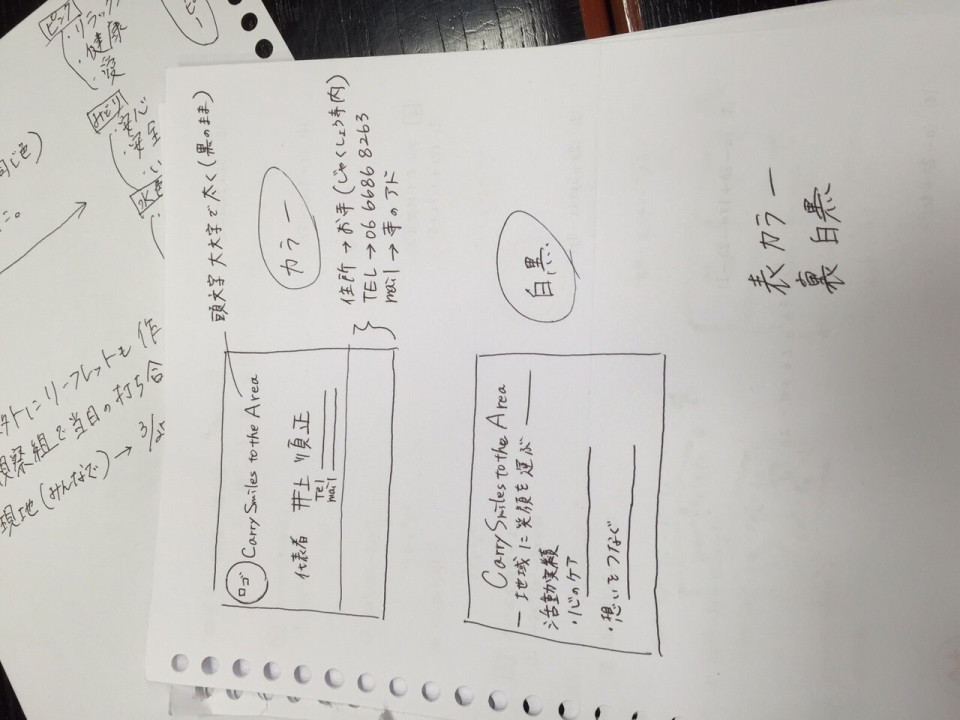 頭文字 大文字で太く(黒のまま)
カラー
ロゴ
Carry Smiles to the Area
代表者 井上 順正
Tel
mail
住所→お寺(じゃくしょう寺内)
TEL→06 6686 8263
mail→寺のアド
白黒
Carry Smiles to the Area
ー地域に笑顔を運ぶー
活動実績
・心のケア
・想いをつなぐ
表 カラー
裏 白黒
ピンク
・リラックス
・健康
・愛
みどり
・安心
・安全
同じ色)
リーフレットも作
視察組で当日の打ち合
現地(みんなで)→3/